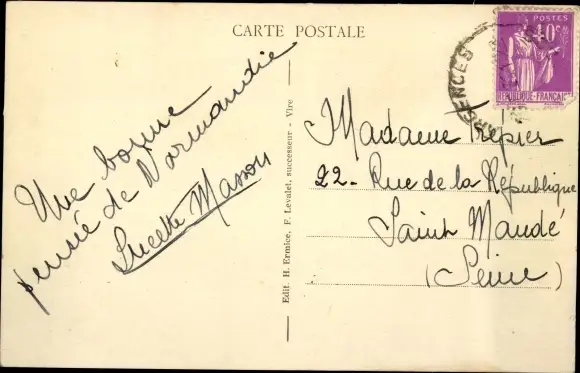 CARTE POSTALE
Une bonne
pensée de Normandie
Lucette Masson
Edit. H. Ermice, F. Levalet, successeur - Vire
POSTES
40c
REPUBLIQUE-FRANÇAISE
ARGENCES
Madame Trépier
22 - Rue de la République
Saint Mandé
(Seine)